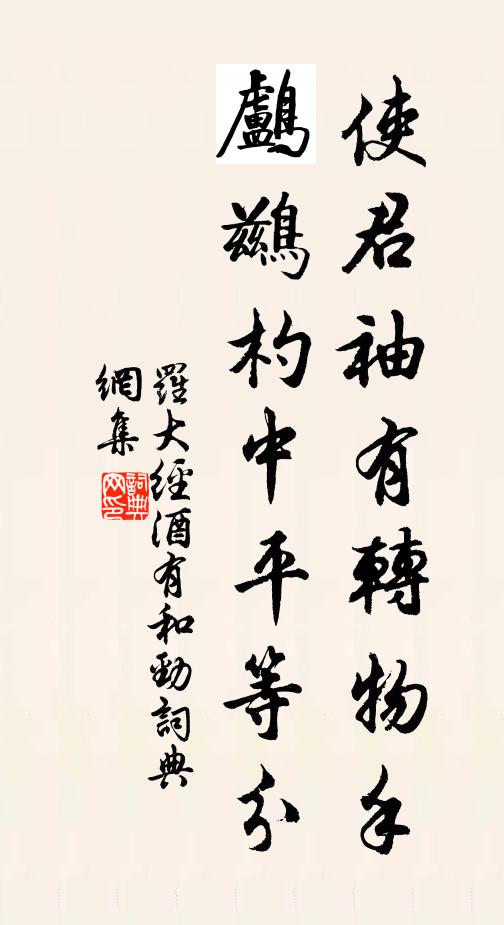 使君袖有轉物手
鸕鷀杓中平等分
羅大經酒有和勁詞典
網集
詞典网印